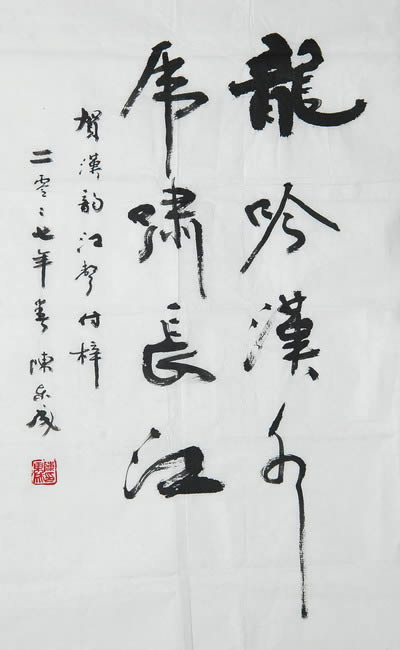 龍吟漢水
虎嘯長江
賀漢韵江聲付梓
二零零七年春 陳東成